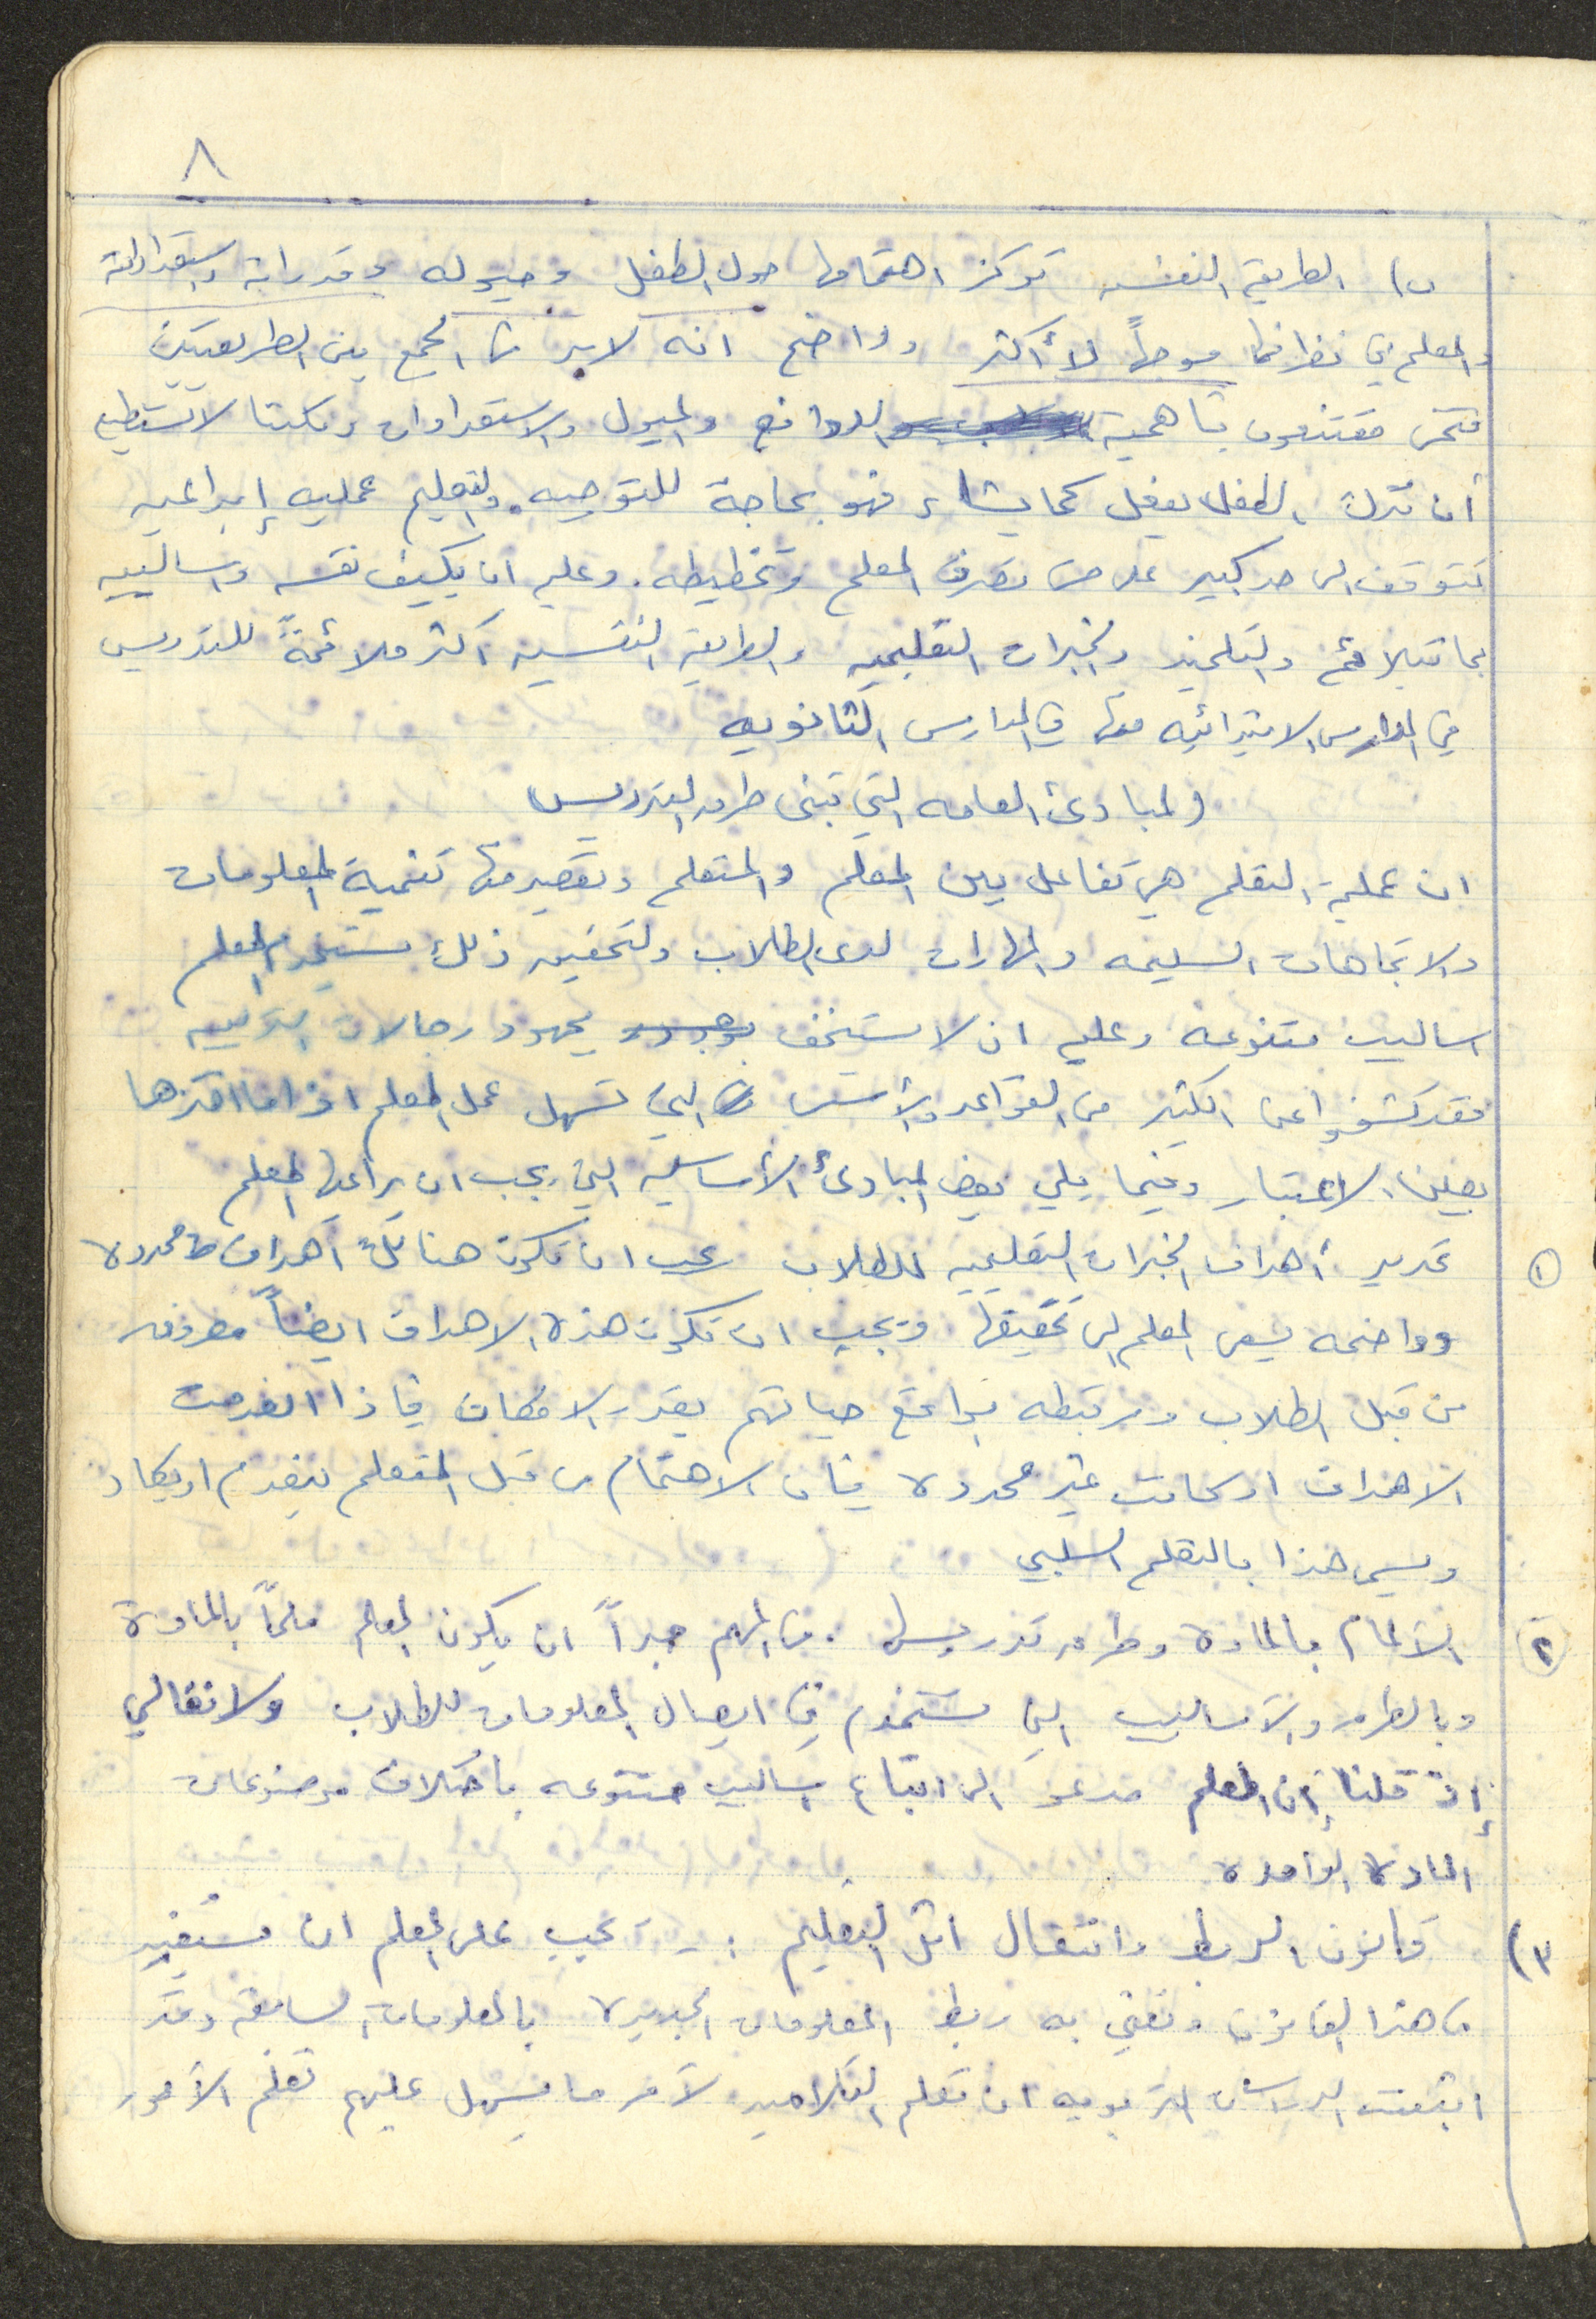 ٨
ب) الطريقة النفسيه تركز اهتمامها حول الطفل وميوله وقدراته واستعداداته
والمعلم في نظرافها موجهاً لا أكثر وواضح انه لابد من الجمع بين الطريقتين
فنحن مقتنعون بأهمية الدوافع والميول والاستعدادات ولكننا لا نستطيع
أن نترك الطفل يفعل كما يشاء فهو بحاجة للتوجيه. والتعليم عمليه إبداعيه
تتوقف الى حد كبير على حسن تصرف المعلم وتخطيطه. وعليه ان يكيف نفسه واساليبه
بما يتلائم والتلميذ والخبرات التعليميه والطريقة النفسيه اكثر ملائمةً للتدريس
في المدارس الابتدائيه منها في المدارس الثانويه
(المبادئ العامه التي تبنى طرق التدريس)
ان عملية التعلم هي تفاعل بين المعلم والمتعلم ويقصد منها تنمية المعلومات
والاتجاهات السليمه والمهارات لدى الطلاب ولتحقيق ذلك يستخدم المعلم
اساليب متنوعه وعليه ان لا يستخف بجهود رجالات التربيه
فقد كشفوا عن الكثير من القواعد والأسس التي تسهل عمل المعلم اذا ما اخذها
بعين الاعتبار وفيما يلي بعض المبادئ الأساسيه التي يجب ان يراعيها المعلم
١ تحديد أهداف الخبرات التعليميه للطلاب يجب ان تكون هنالك أهداف محدده
وواضحه يسعى المعلم الى تحقيقها ويجب ان تكون هذه الاهداف ايضاً معروفه
من قبل الطلاب ومرتبطه بواقع حياتهم بقدر الامكان فإذا انعدمت
الاهداف او كانت غير محدده فان الاهتمام من قبل المتعلم ينعدم او يكاد
ويسمى هذا بالتعلم السلبي
٢ الألمام بالماده وطرق تدريسها. من المهم جداً ان يكون المعلم ملماً بالمادة
وبالطرق والأساليب التي تستخدم في ايصال المعلومات للطلاب ولا نغالي
إذ قلنا إن المعلم مدعو الى اتباع اساليب متنوعه باختلاف موضوعات
الماده الواحده
٣) قانون الربط وانتقال اثر التعليم :- يجب على المعلم ان يستفيد
من هذا القانون ونعني به ربط المعلومات الجديده بالمعلومات السابقه وقد
اثبتت الدراسات التربويه ان تعلم التلاميذ لأمر ما يسهل عليهم تعلم الأمور